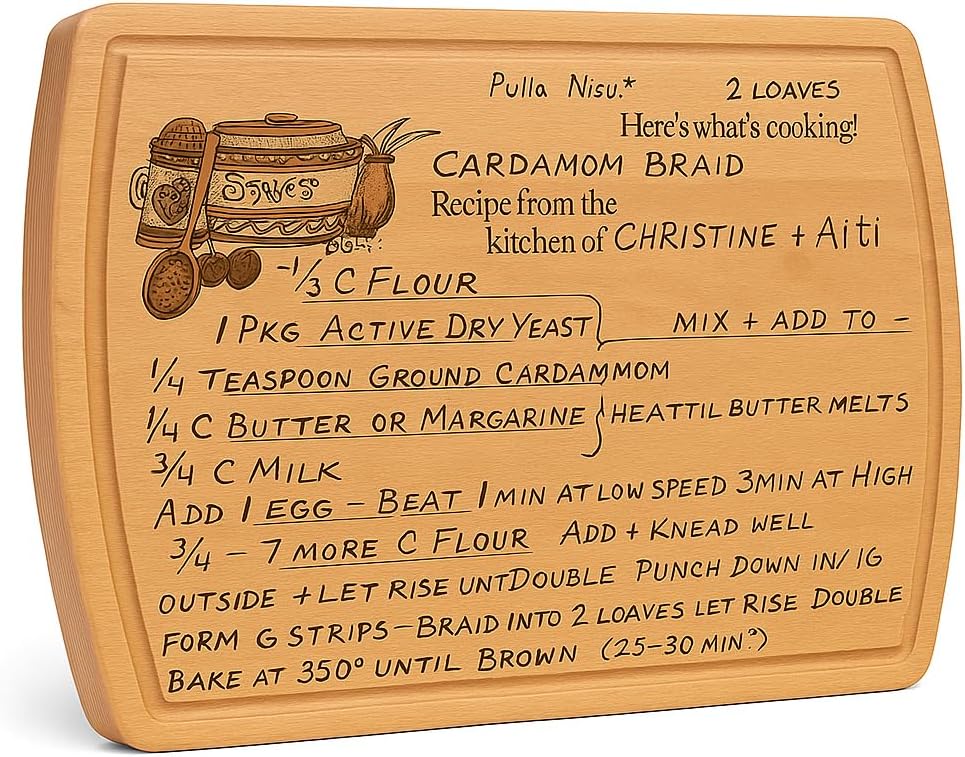 Pulla Nisu.* 2 LOAVES
Here's what's cooking!
CARDAMOM BRAID
Recipe from the
kitchen of CHRISTINE + Aiti
-1/3 C FLOUR
1 PKG ACTIVE DRY YEAST MIX + ADD TO -
1/4 TEASPOON GROUND CARDAMMOM
1/4 C BUTTER OR MARGARINE HEATTIL BUTTER MELTS
3/4 C MILK
ADD 1 EGG - BEAT 1 MIN AT LOW SPEED 3MIN AT HIGH
3/4 - 7 MORE C FLOUR ADD + KNEAD WELL
OUTSIDE + LET RISE UNTDOUBLE PUNCH DOWN IN/ IG
FORM G STRIPS-BRAID INTO 2 LOAVES LET RISE DOUBLE
BAKE AT 350° UNTIL BROWN (25-30 MIN?)